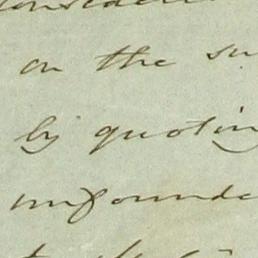 on the su
by quotin
unfounde